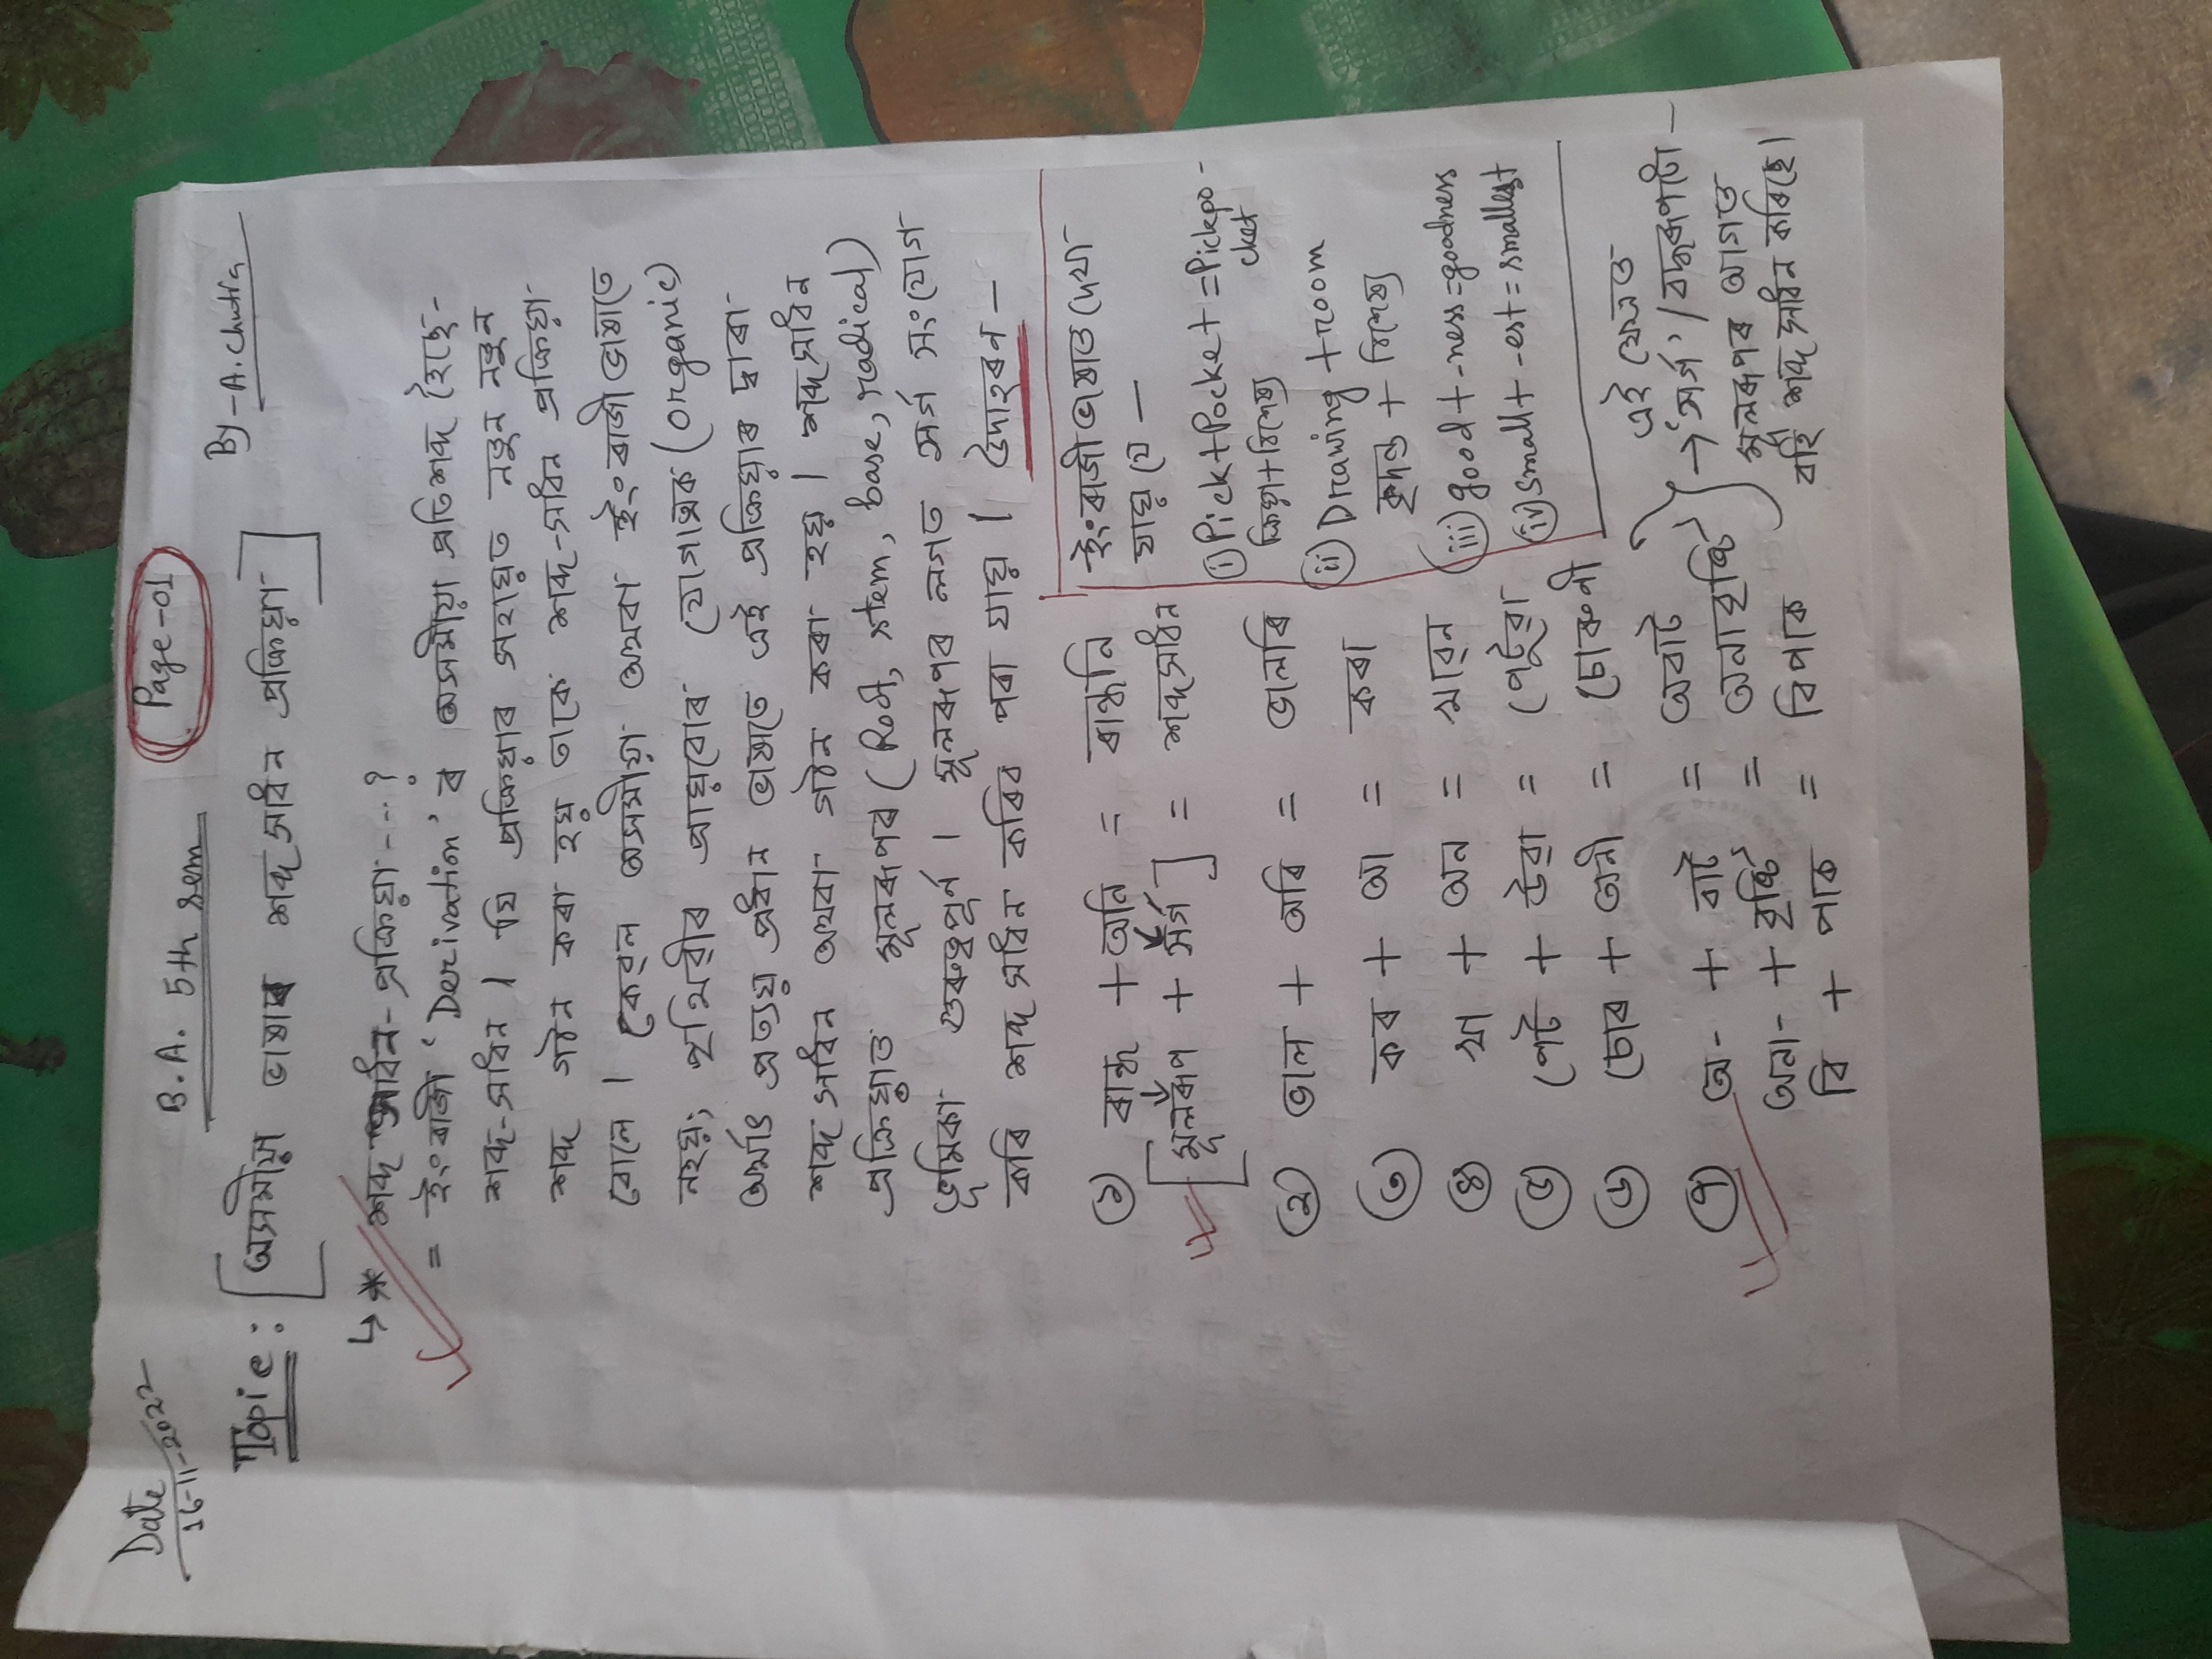 Page-01
Date
16-11-2022
B.A. 5th sem
By - A. Chutia
Topic : [অসমীয়া ভাষাৰ শব্দ সাধন প্ৰক্ৰিয়া]
↳ * শব্দ সাধন- প্ৰক্ৰিয়া ---?
= ইংৰাজী 'Derivation' ৰ অসমীয়া প্ৰতিশব্দ হৈছে-
শব্দ-সাধন । যি প্ৰক্ৰিয়াৰ সহায়ত নতুন নতুন
শব্দ গঠন কৰা হয় তাকে শব্দ-সাধন প্ৰক্ৰিয়া
বোলে । কেৱল অসমীয়া অথবা ইংৰাজী ভাষাতে
নহয়; পৃথিৱীৰ প্ৰায়বোৰ যোগাত্মক (organic)
অৰ্থাৎ প্ৰত্যয় প্ৰধান ভাষাতে এই প্ৰক্ৰিয়াৰ দ্বাৰা
শব্দ সাধন অথবা গঠন কৰা হয় । শব্দ সাধন
প্ৰক্ৰিয়াত মূলৰূপৰ (Root, stem, base, radical)
ভূমিকা গুৰুত্বপূৰ্ণ । মূলৰূপৰ লগত সৰ্গ সংযোগ
কৰি শব্দ সাধন কৰিব পৰা যায় । উদাহৰণ —
১ ৰান্ধ + অনি = ৰান্ধনি
[মূলৰূপ + সৰ্গ] = শব্দসাধন
২ ভাল + অৰি = ভালৰি
৩ কৰ + আ = কৰা
৪ খা + অন = খাৱন
৫ পেট + উৱা = পেটুৱা
৬ চোৰ + অনী = চোৰুণী
৭ অ- + বাট = অবাট
অনা- + বৃষ্টি = অনাবৃষ্টি
বি + পাক = বিপাক
→ এই ক্ষেত্ৰত
'সৰ্গ' / বদ্ধৰূপটো —
মূলৰূপৰ আগত
বহি শব্দ সাধন কৰিছে।
ইংৰাজী ভাষাত দেখা
যায় যে —
(i) Pick+Pocket = Pickpo-
cket
ক্ৰিয়া+বিশেষ্য
(ii) Drawing + room
কৃদন্ত + বিশেষ্য
(iii) good + -ness = goodness
(iv) small + -est = smallest